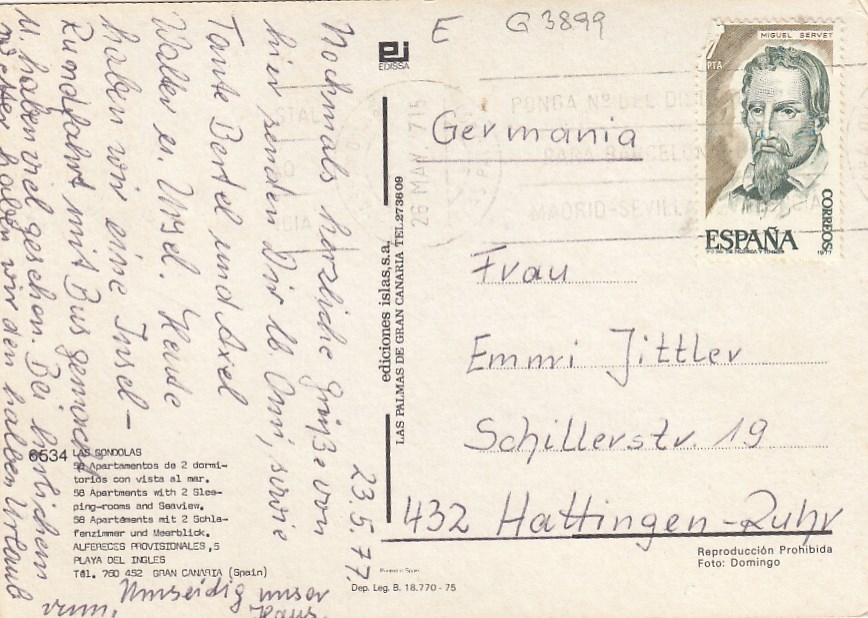 E
G 3899
EDISSA
23.5.77.
Nochmals herzliche Grüße von
hier senden Dir lb. Omi, sowie
Tante Bertel und Axel
Walter u. Ursel. Heute
haben wir eine Insel-
Rundfahrt mit Bus gemacht
u. haben viel gesehen. Bei herrlichem
Wetter haben wir den halben Urlaub
rum.
Umseidig unser
Haus.
6534 LAS GONDOLAS
58 Apartamentos de 2 dormi-
torios con vista al mar.
58 Apartments with 2 Slee-
ping-rooms and Seaview.
58 Apartéments mit 2 Schla-
fenzimmer und Meerblick.
ALFERECES PROVISIONALES,5
PLAYA DEL INGLES
Tél. 760 452 GRAN CANARIA (Spain)
ediciones islas,s.a.
LAS PALMAS DE GRAN CANARIA TEL.273609
Printed in Spain
Dep. Leg. B. 18.770 - 75
26 MAY. 77
PONGA Nº DEL DIST
PARA BARCELON
MADRID-SEVILLA
MIGUEL SERVET
7 PTA
ESPAÑA
CORREOS
1977
Germania
Frau
Emmi Jittler
Schillerstr. 19
432 Hattingen-Ruhr
Reproducción Prohibida
Foto: Domingo